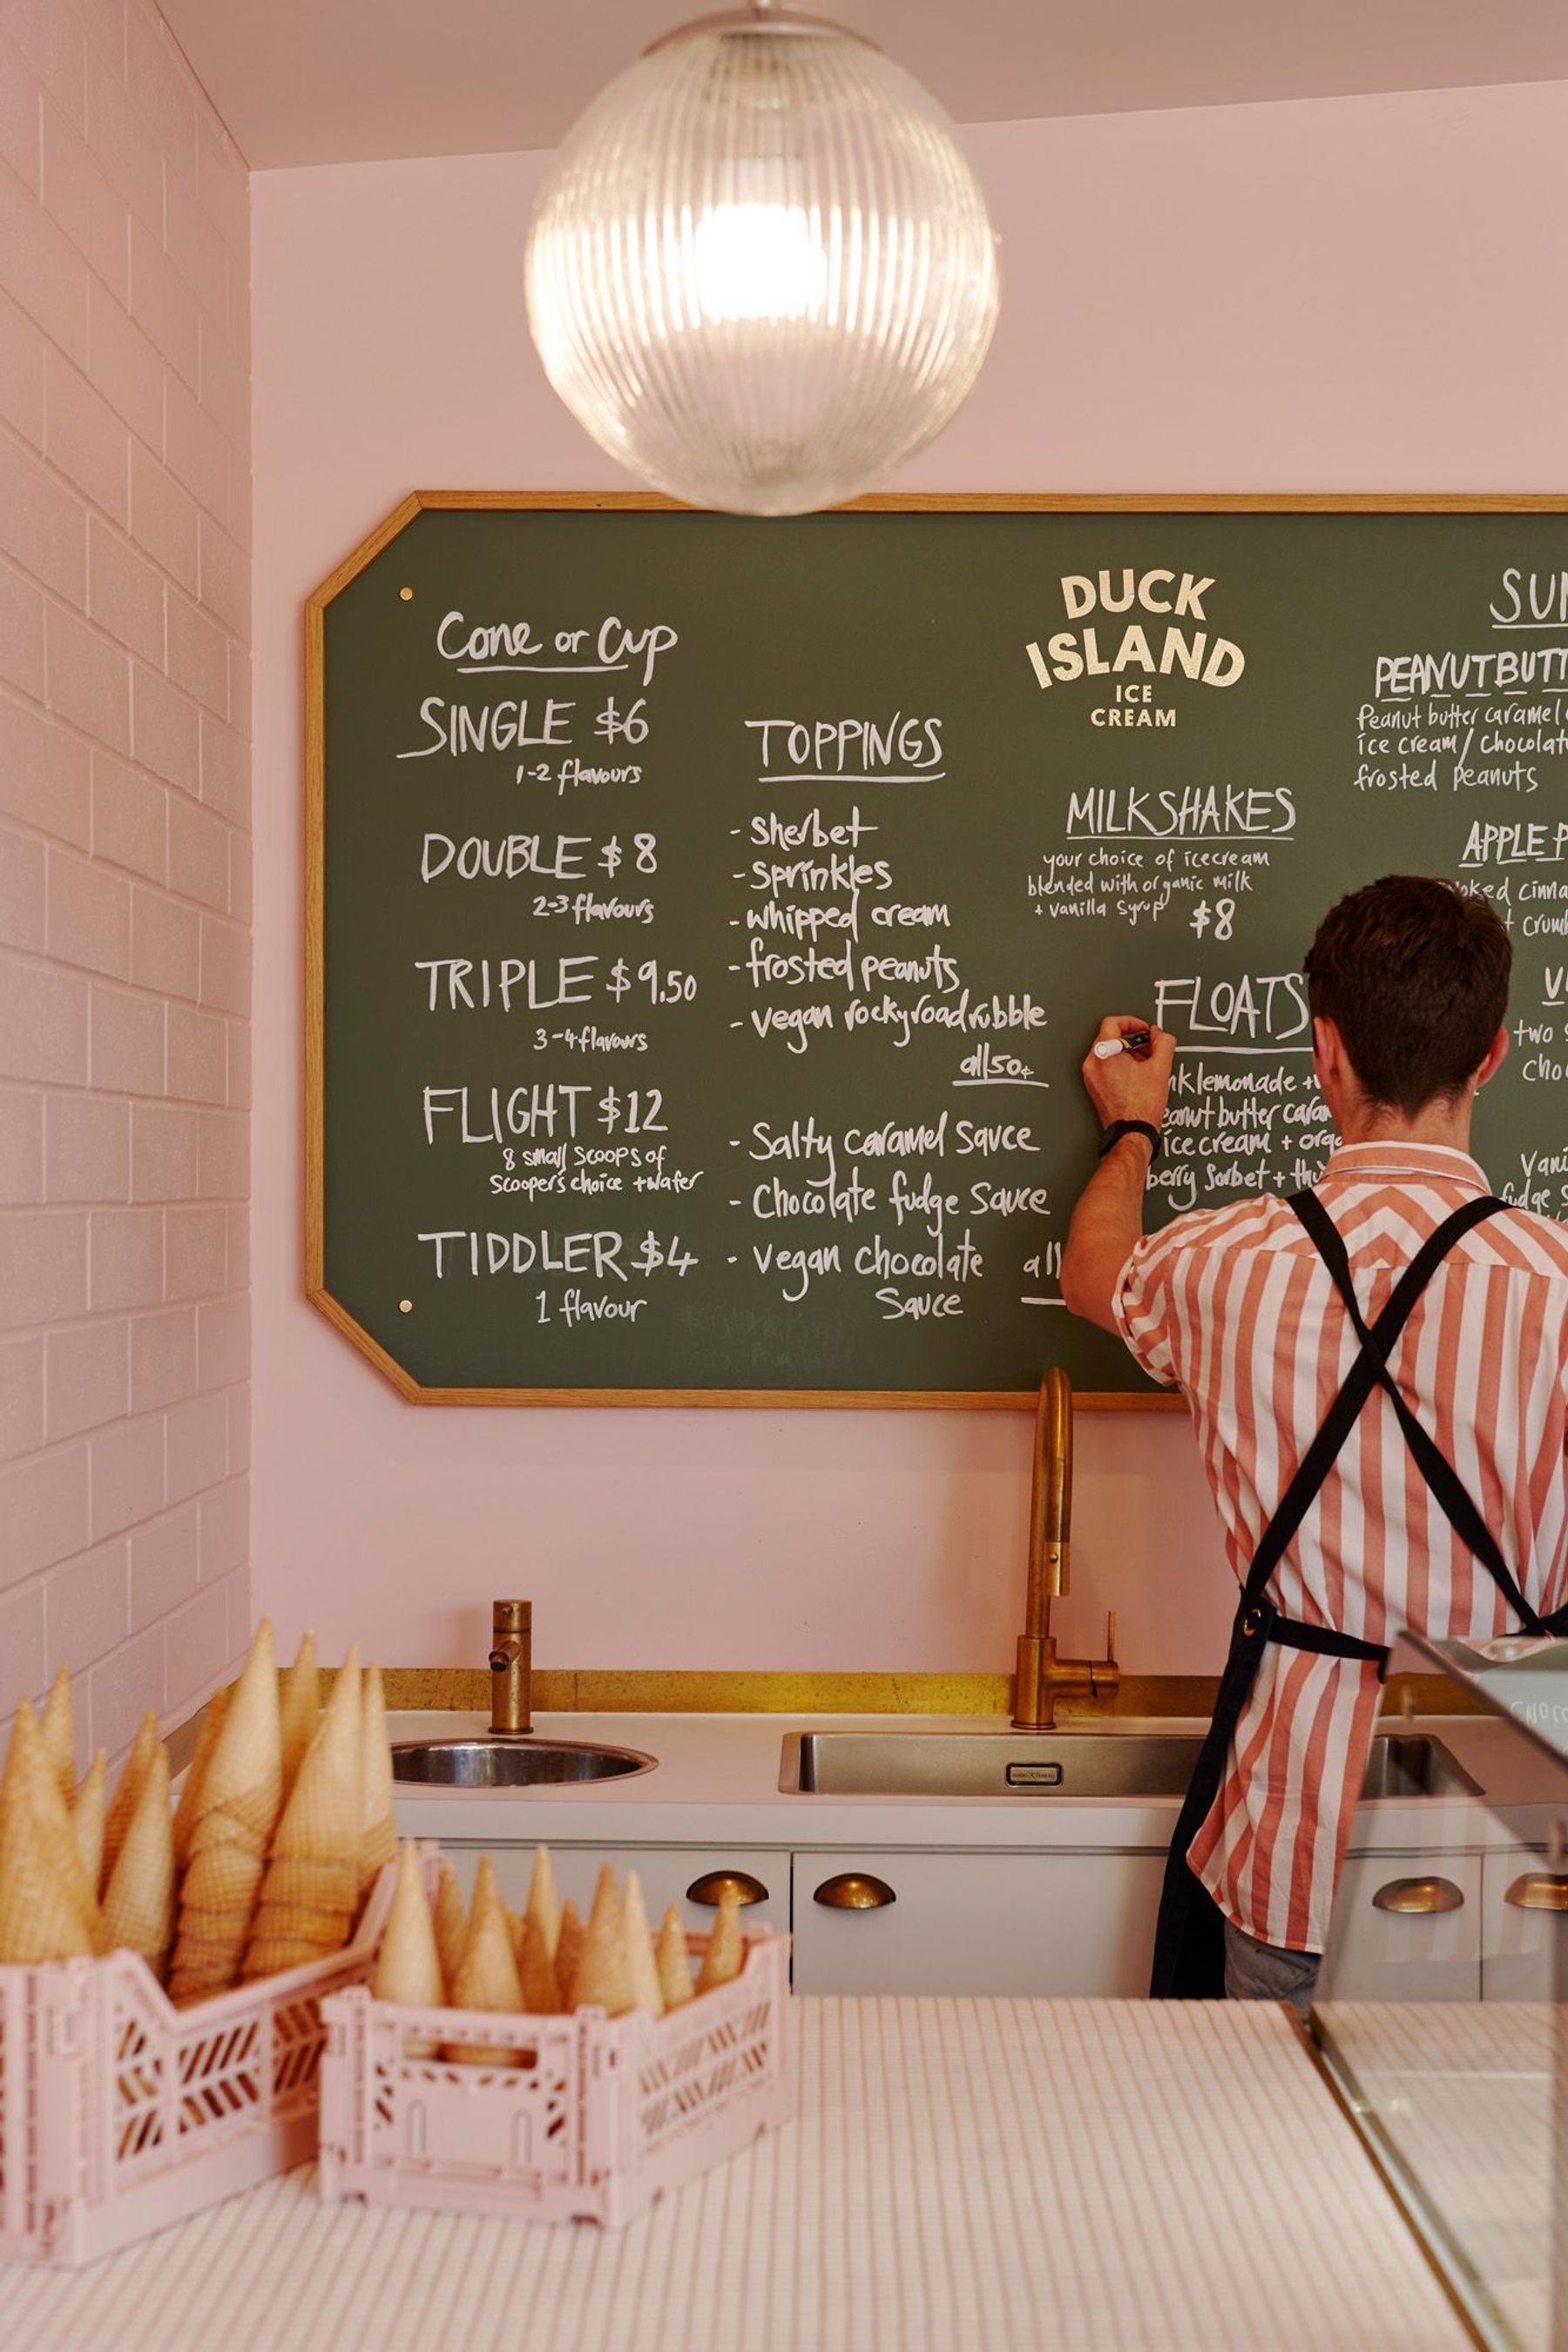 Cone or Cup
SINGLE $6
1-2 flavours
DOUBLE $8
2-3 flavours
TRIPLE $9.50
3-4 flavours
FLIGHT $12
8 small scoops of
Scooper's choice + wafer
TIDDLER $4
1 flavour
TOPPINGS
- sherbet
- sprinkles
- whipped cream
- frosted peanuts
- vegan rockyroad rubble
all 50¢
- Salty caramel sauce
- Chocolate fudge sauce
- vegan chocolate all
Sauce
DUCK
ISLAND
ICE
CREAM
MILKSHAKES
your choice of icecream
blended with organic milk
+ vanilla syrup $8
FLOATS
nklemonade +
eanut butter cara
ice cream + org
berry sorbet + th
SUN
PEANUTBUTT
Peanut butter caramel
ice cream / chocolat
frosted peanuts
APPLE P
oked cinna
t crum
V
two s
cho
Vani
fudge s